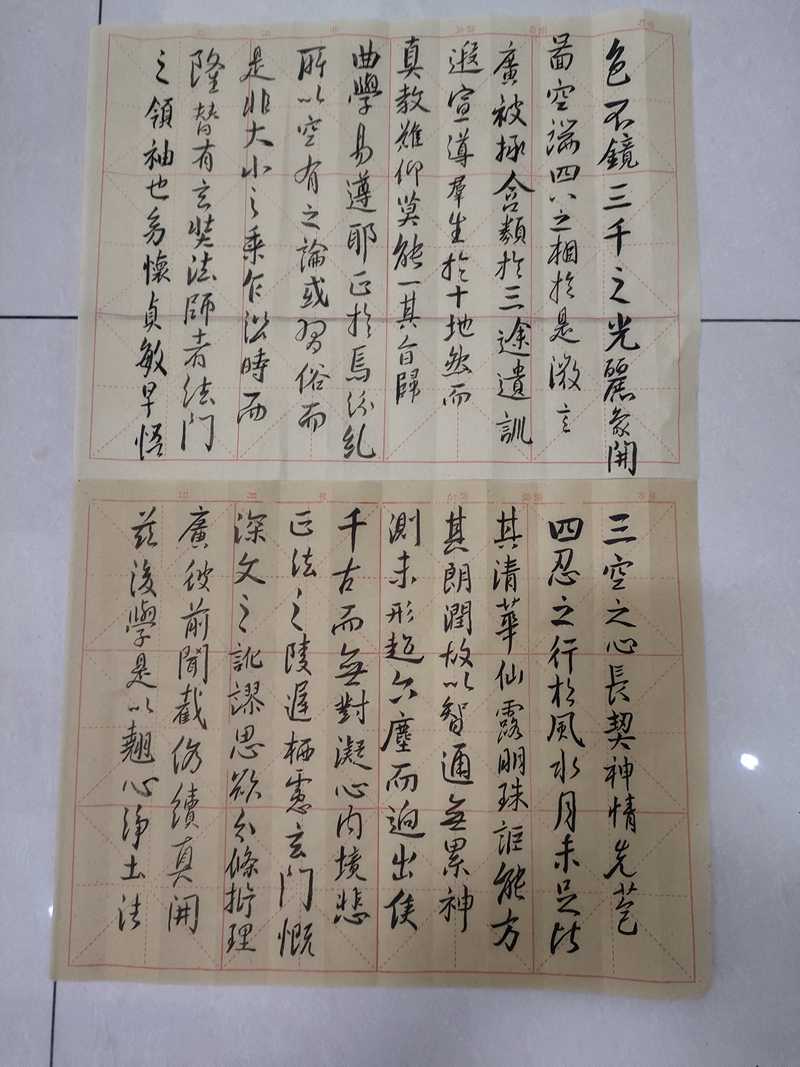 色不鏡三千之光麗象開
圖空端四八之相於是微言
廣被拯含類於三途遺訓
遐宣導羣生於十地然而
真教難仰莫能一其旨歸
曲學易遵耶正於焉紛糺
所以空有之論或習俗而
是非大小之乘乍沿時而
隆替有玄奘法師者法門
之領袖也幼懷貞敏早悟
三空之心長契神情先苞
四忍之行松風水月未足比
其清華仙露明珠詎能方
其朗潤故以智通無累神
測未形超六塵而迥出隻
千古而無對凝心內境悲
正法之陵遲栖慮玄門慨
深文之訛謬思欲分條析理
廣彼前聞截偽續真開
茲後學是以翹心淨土法